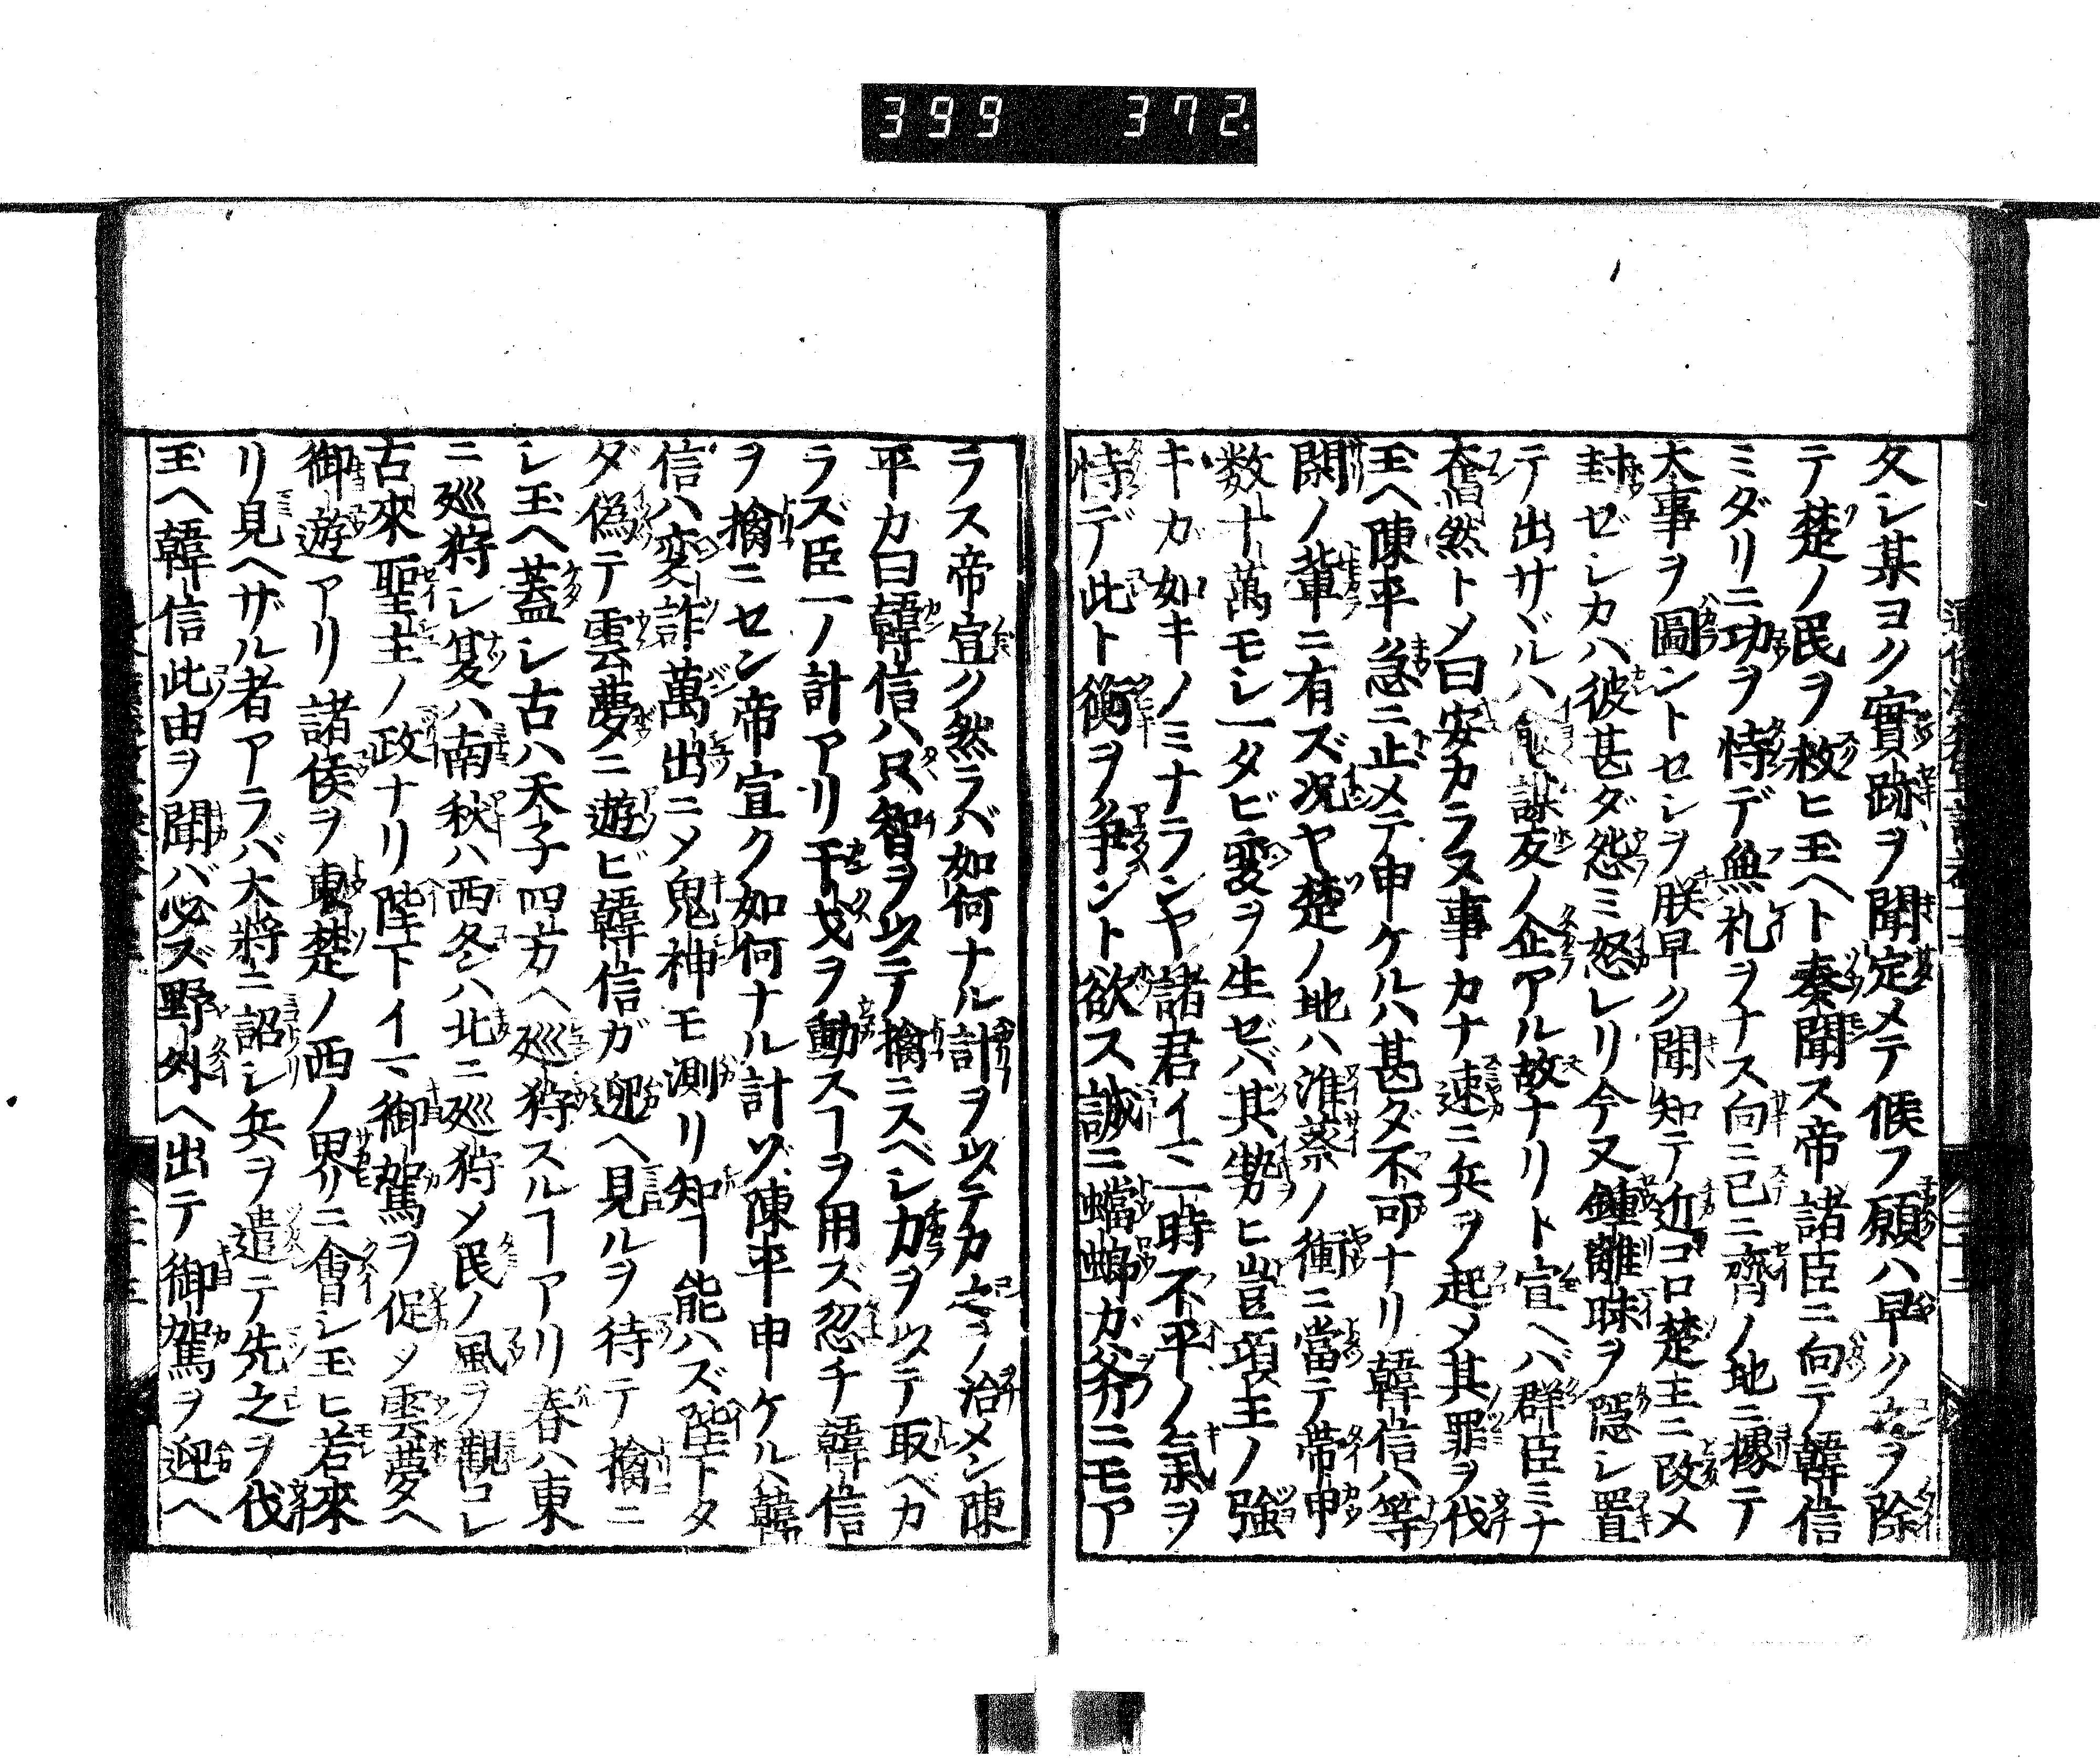 399 372.
久シ某ヨク實跡ヲ聞定メテ候フ願ハ早ク之ヲ除
テ楚ノ民ヲ救ヒ玉ヘト奏聞ス帝諸臣ニ向テ韓信
ミダリニ功ヲ恃デ無礼ヲナス向ニ已ニ齊ノ地ニ據テ
大事ヲ圖ントセシヲ朕早ク聞知テ近コロ楚主ニ改メ
封ゼシカバ彼甚ダ怨ミ怒レリ今又鍾離昧ヲ隱シ置
テ出サヾルハ謀反ノ企アル故ナリト宣ヘバ群臣ミナ
奮然トメ曰安カラヌ事カナ速ニ兵ヲ起メ其罪ヲ伐
玉ヘ陳平急ニ止メテ申ケルハ甚ダ不可ナリ韓信ハ等
閑ノ輩ニ有ズ况ヤ楚ノ地ハ淮蔡ノ衝ニ當テ帶甲
数十萬モシ一タビ変ヲ生ゼバ其勢ヒ豈項主ノ強
キガ如キノミナランヤ諸君イマ一時不平ノ氣ヲ
恃デ此ト衡ヲ爭ント欲ス誠ニ蟷螂ガ斧ニモア
ラス帝宣ク然ラバ如何ナル計ヲ以テカ之ヲ治メン陳
平カ曰韓信ハ只智ヲ以テ擒ニスベシ力ヲ以テ取ベカ
ラズ臣一ノ計アリ干戈ヲ動スヿヲ用ズ忽チ韓信
ヲ擒ニセン帝宣ク如何ナル計ゾ陳平申ケルハ韓
信ハ変詐萬出ニメ鬼神モ測リ知ヿ能ハズ陛下タ
ダ偽テ雲夢ニ遊ビ韓信ガ迎ヘ見ルヲ待テ擒ニ
シ玉ヘ蓋シ古ハ天子四方ヘ廵狩スルヿアリ春ハ東
ニ廵狩シ夏ハ南秋ハ西冬ハ北ニ廵狩メ民ノ風ヲ觀コレ
古來聖主ノ政ナリ陛下イマ御駕ヲ促メ雲夢ヘ
御遊アリ諸侯ヲ東楚ノ西ノ界リニ會シ玉ヒ若來
リ見ヘザル者アラバ大將ニ詔シ兵ヲ遣テ先之ヲ伐
玉ヘ韓信此由ヲ聞バ必ズ野外ヘ出テ御駕ヲ迎ヘ